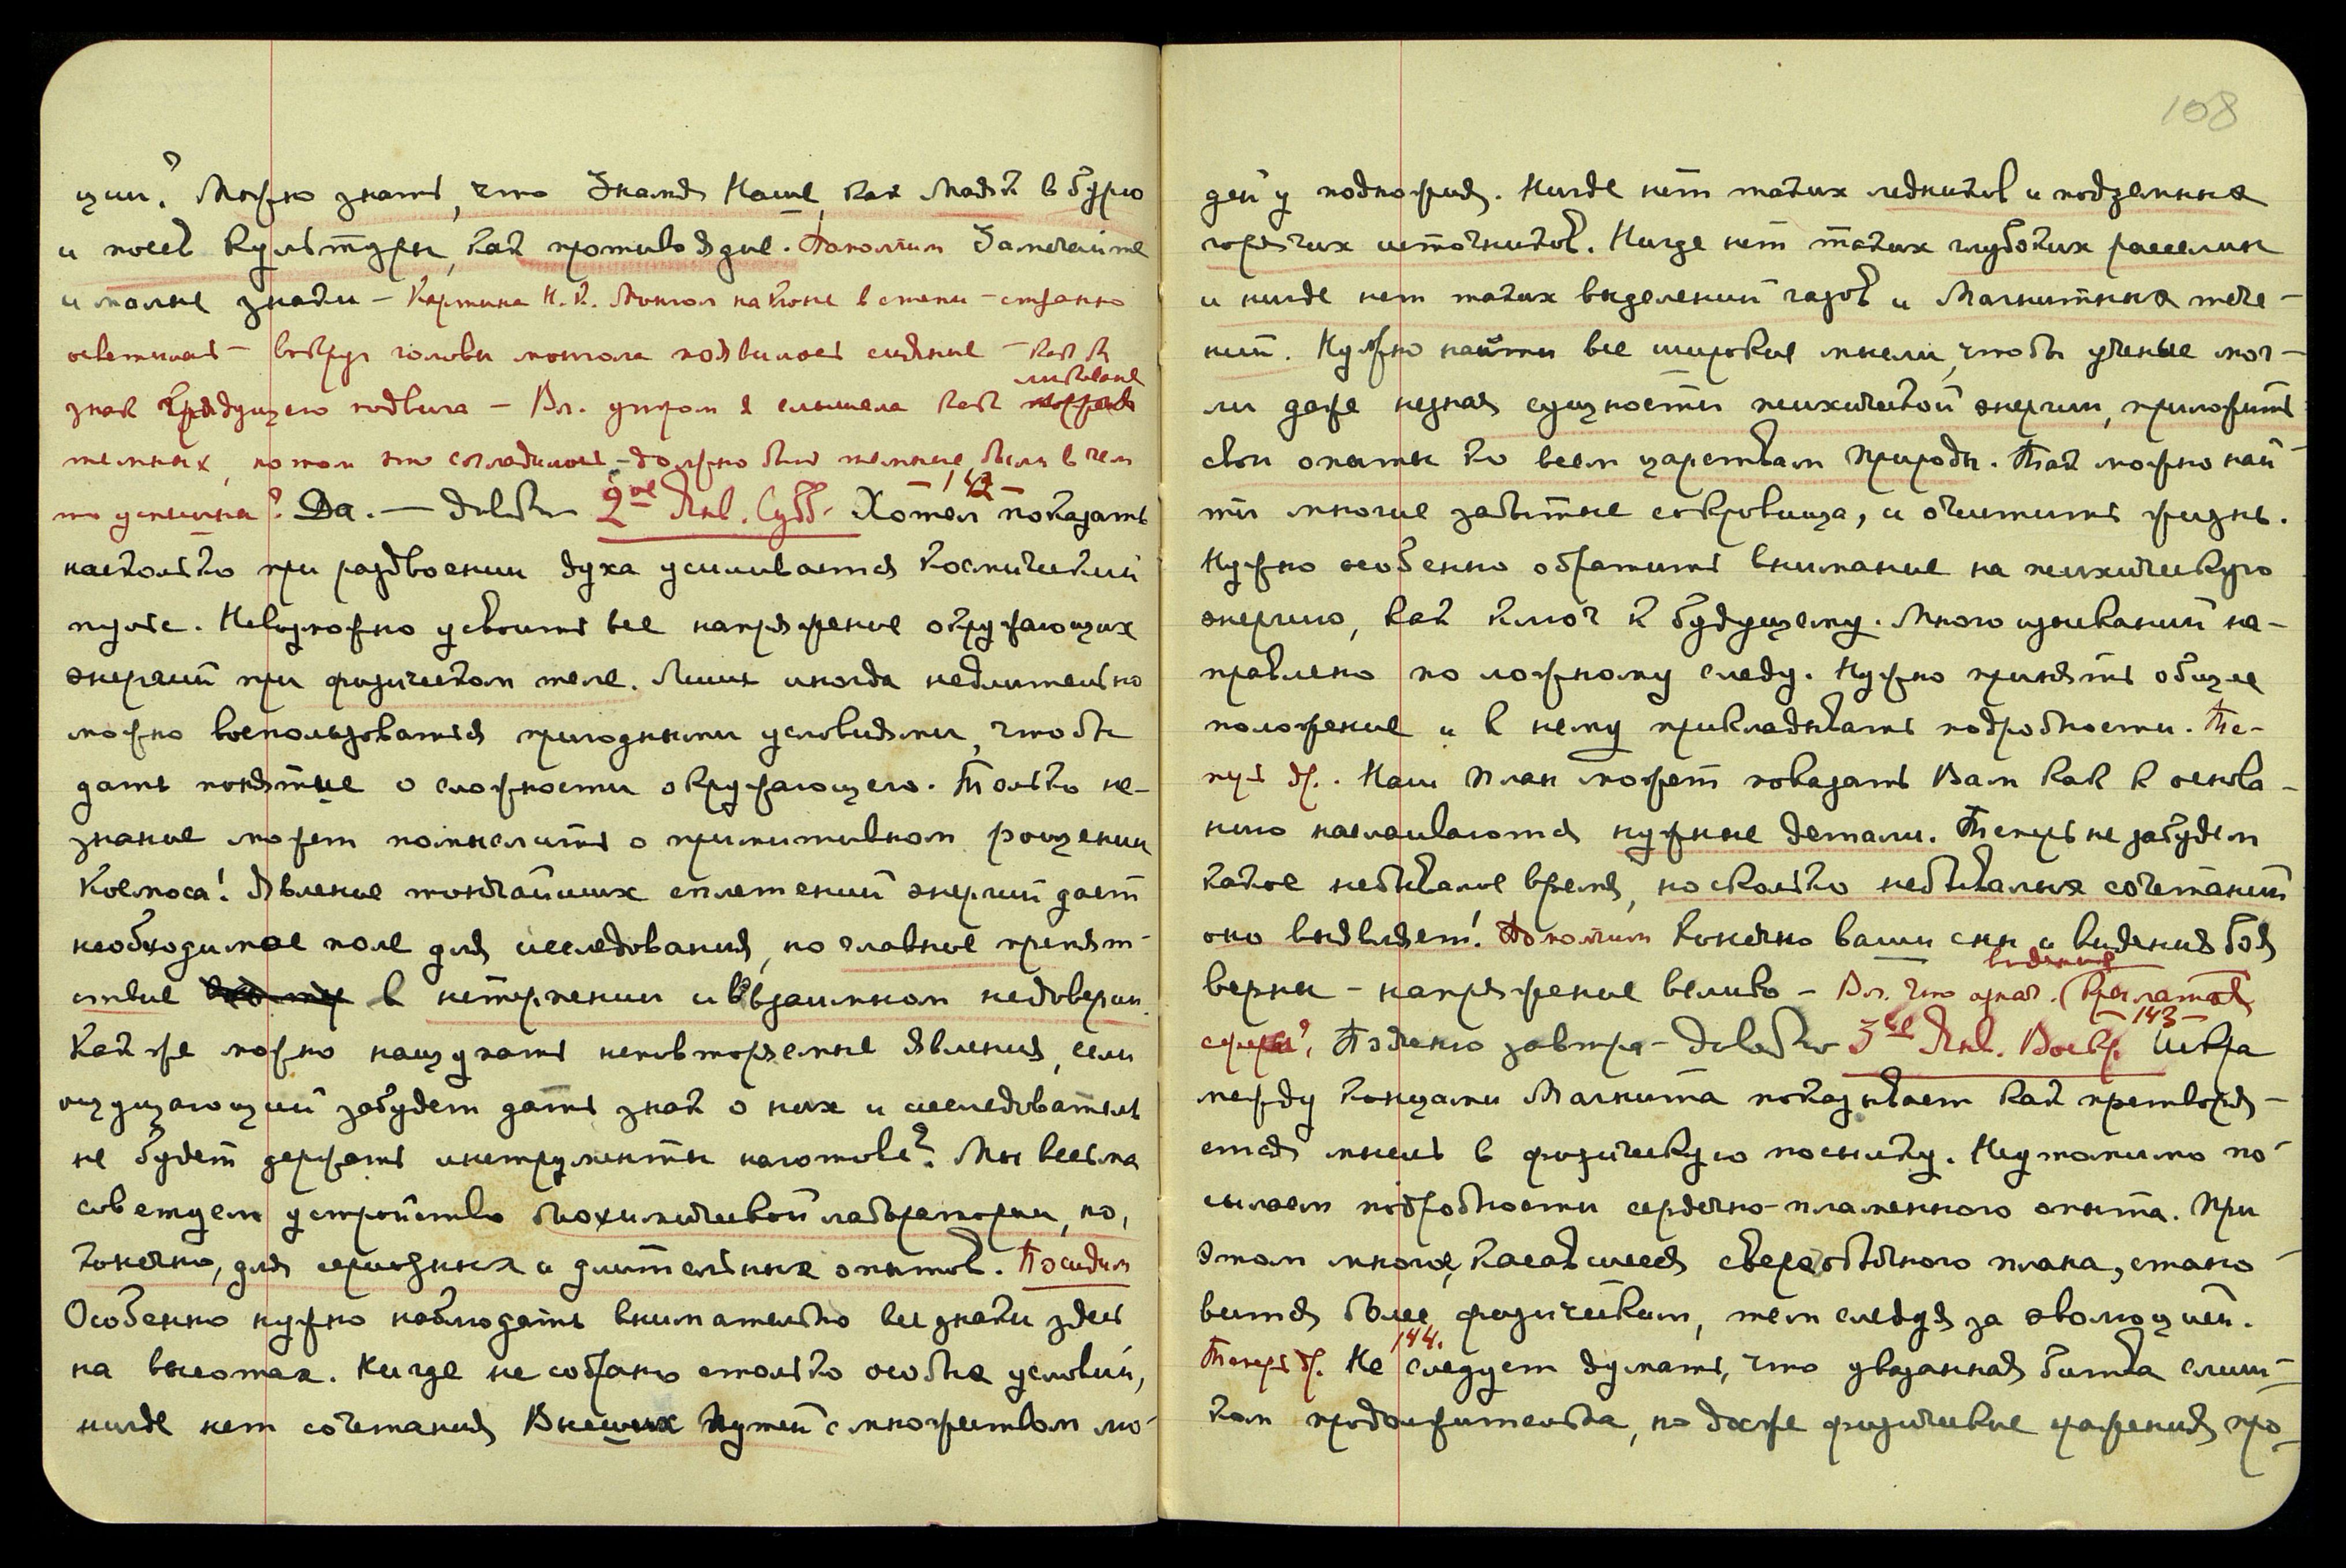 ции? Можно знать, что Знамя Наше, как Маяк в бурю
и посев культуры, как противоядие. Помолчим Замечайте
и малые знаки – Картина Н.К. Монгол на коне в степи – странно
осветилась – вокруг головы монгола появилось сияние – как бы
знак грядущего подвига – Вл. утром я слышала как ликование
темных, потом это сгладилось – должно быть темные были в чем
то успешна? Да. — довольно 2ое Янв. Субб. 142 Хотел показать
насколько при раздвоении духа усиливается космический
пульс. Невозможно усвоить все напряжение окружающих
энергий при физическом теле. Лишь иногда недлительно
можно воспользоваться пригодными условиями, чтобы
дать понятие о сложности окружающего. Только не-
знание может помыслить о примитивном
Космоса! Явление тончайших сплетений энергий дает
необходимое поле для исследования, но главное препят-
ствие в нетерпении и взаимном недоверии.
Как же можно нащупать неповторяемые явления, если
ощущающий забудет дать знак о них и исследователь
не будет держать инструменты наготове? Мы весьма
советуем устройство биохимической лаборатории, но,
конечно, для серьезных и длительных опытов. Посидим
Особенно нужно наблюдать внимательно все знаки здесь
на высотах. Нигде не собрано столько особых условий,
нигде нет сочетания Высших Путей с множеством лю-
108
дей у подножия. Нигде нет таких ледников и подземных
горячих источников. Нигде нет таких глубоких расселин
и нигде нет таких выделений газов и Магнитных тече-
ний. Нужно найти все широкие мысли, чтобы ученые мог-
ли даже не зная сущности психической энергии, приложить
свои опыты ко всем царствам Природы. Так можно най-
ти многие забытые сокровища, и очистить жизнь.
Нужно особенно обратить внимание на психическую
энергию, как ключ к будущему. Много изысканий на-
правлено по ложному следу. Нужно принять общее
положение и к нему прикладывать подробности. Те-
перь др. Наш План может показать Вам как к основа-
нию наслаиваются нужные детали. Теперь не забудем
какое небывалое время, но сколько небывалых сочетаний
оно выявляет! Помолчим Конечно ваши сны и видения боя
верны – напряжение велико – Вл. что означ. (видение) крылатой
сферы? Поясню завтра – довольно 3ье Янв. Воскр. – 143 – Искра
между концами Магнита показывает как претворя-
ется мысль в физическую посылку. Неутомимо по-
сылаем подробности сердечно-пламенного опыта. При
этом многое, касавшееся сверхобычного плана, стано-
вится более физическим, тем следуя за эволюцией.
Теперь др. 144. Не следует думать, что указанная битва слиш-
ком продолжительна, но даже физические сражения про-